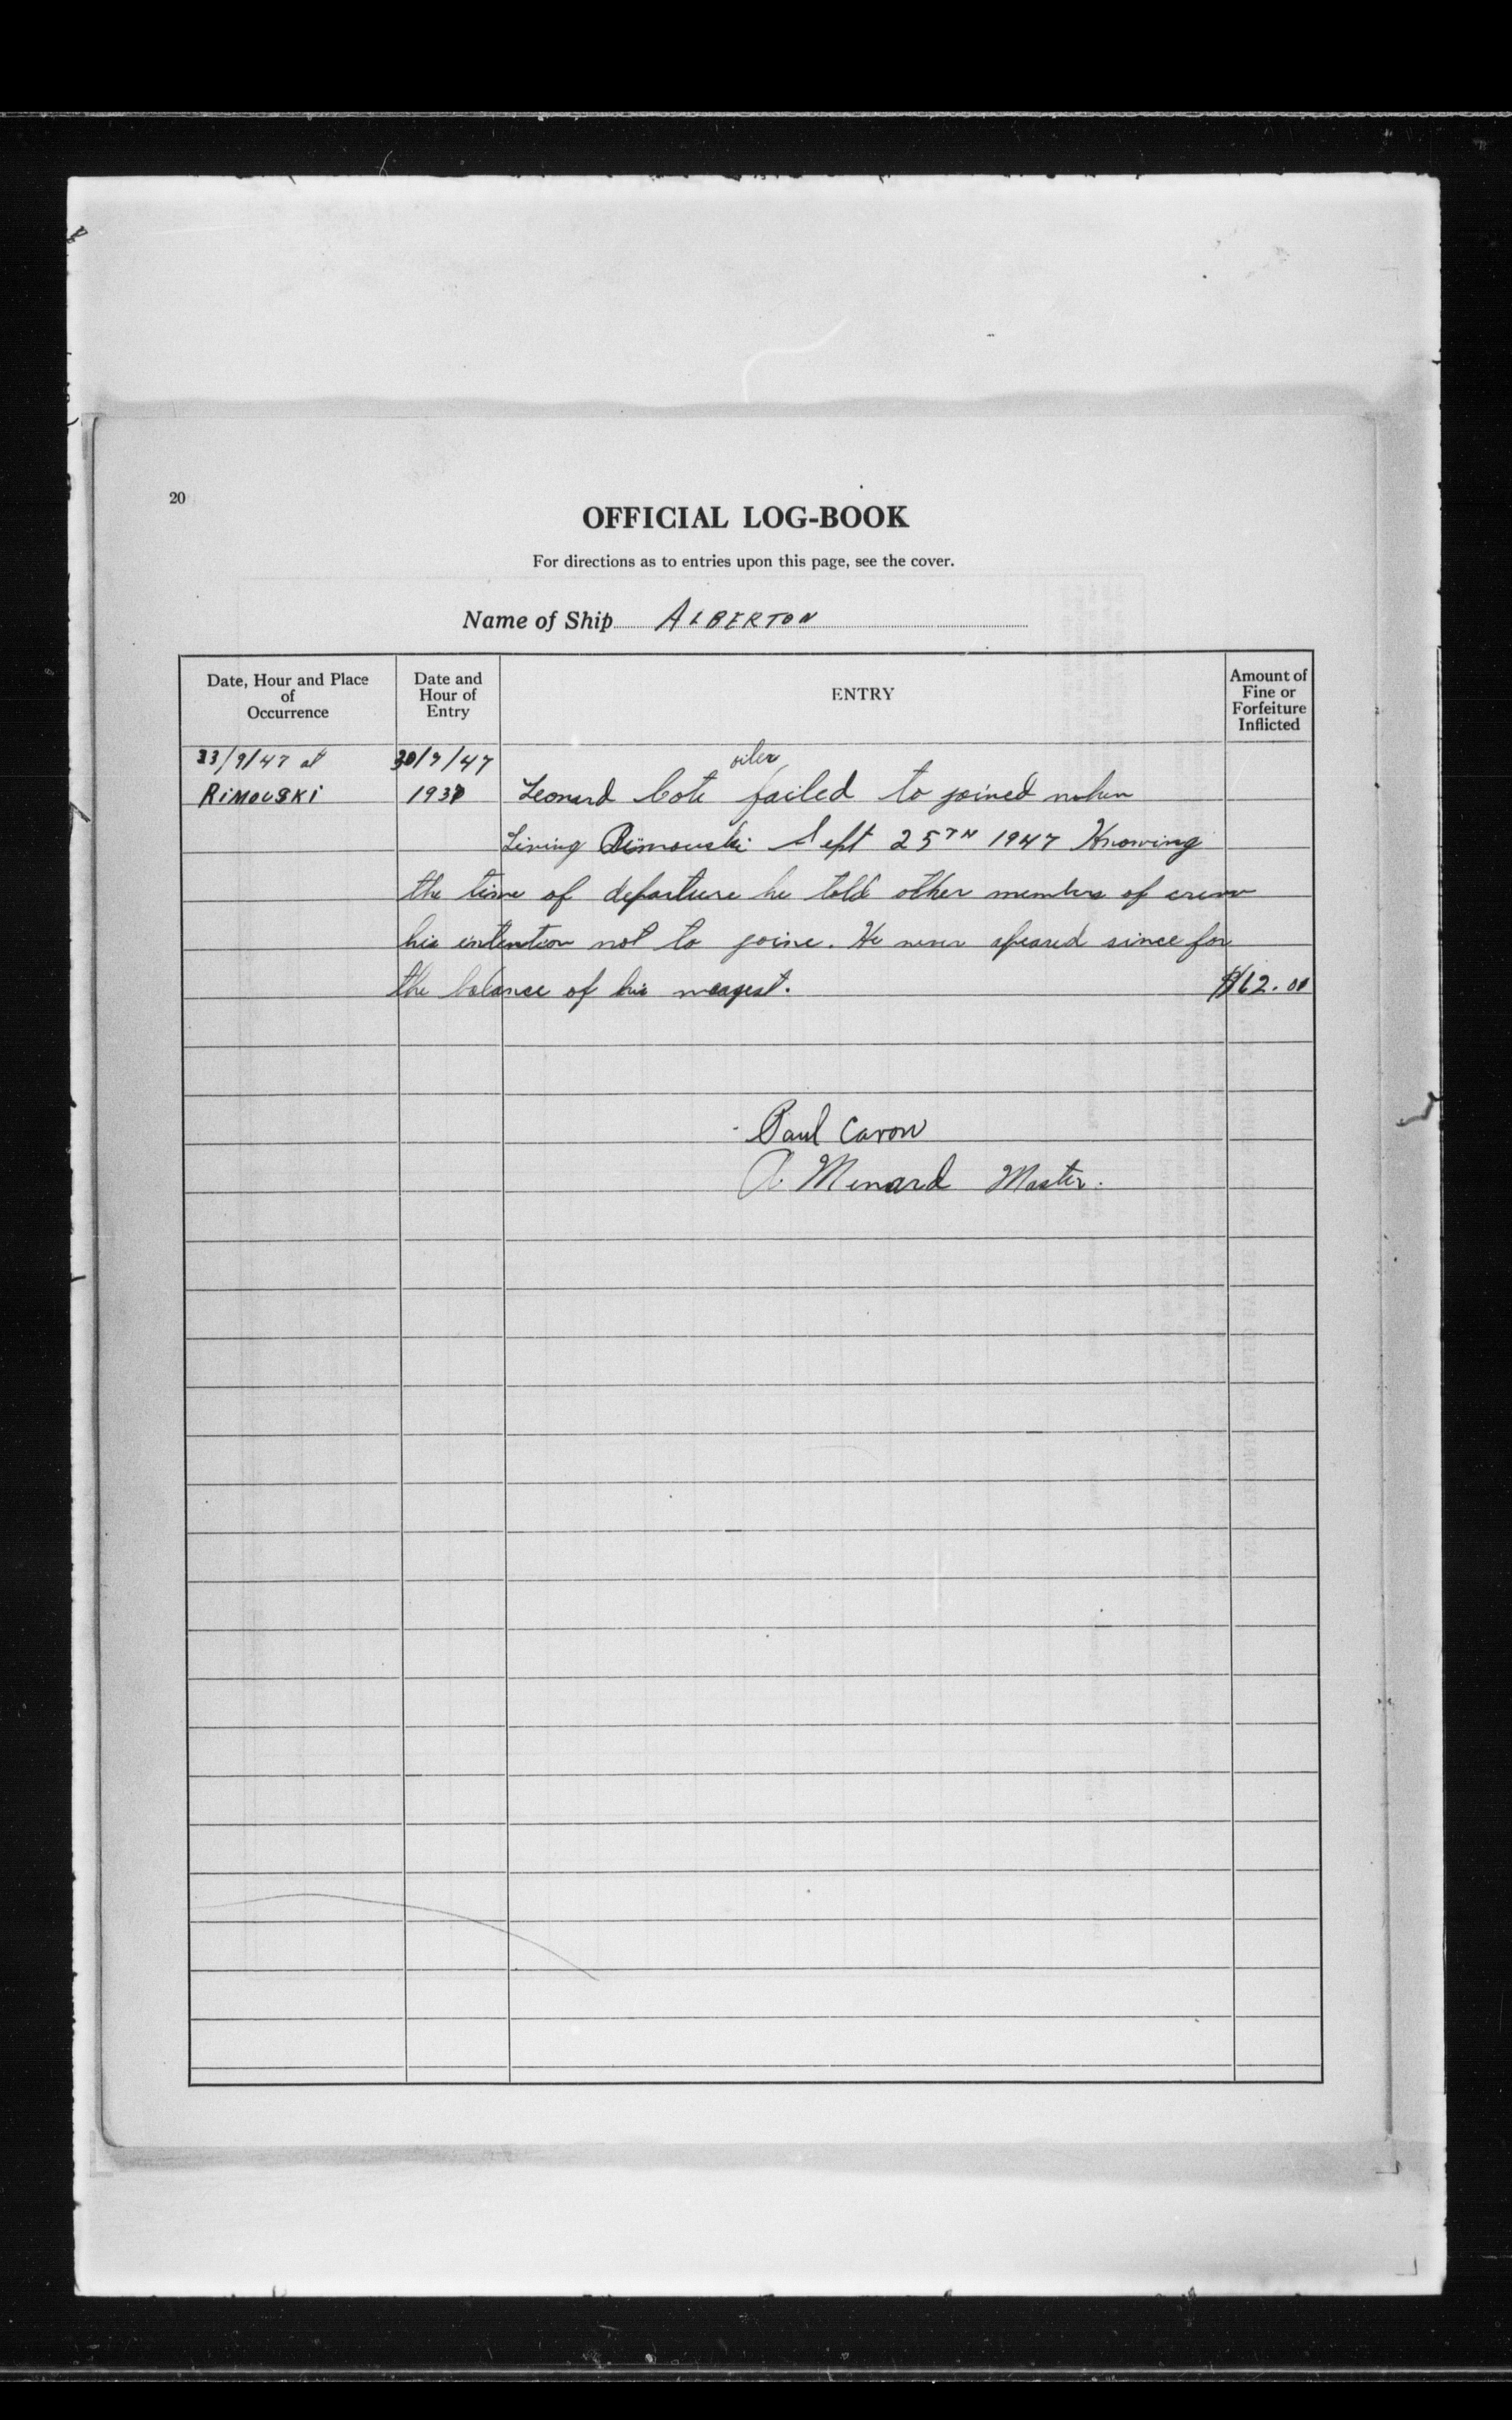 20
OFFICIAL LOG-BOOK
For directions as to entries upon this page, see the cover.
Name of Ship ALBERTON
Date, Hour and Place
of
Occurrence
Date and
Hour of
Entry
ENTRY
Amount of
Fine or
Forfeiture
Inflicted
23/9/47 at
30/9/47
oiler
RIMOUSKI
193
Leonard Cote failed to joined when
Living Rimouski Sept 25TH 1947 Knowing
the time of departure he told other members of crew
his intention not to joine. He never apeared since for
the balance of his weagest.
$62.00
Paul Caron
A. Menard Master.